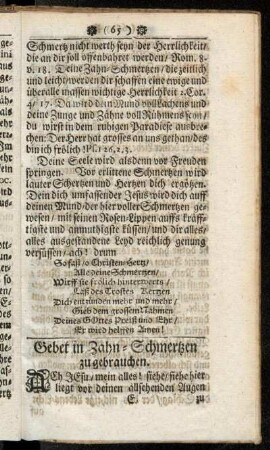 (65)
Schmertz nicht werth seyn der Herrlichkeit/
die an dir soll offenbahret werden/ Rom. 8.
v. 18. Deine Zahn-Schmertzen/ die zeitlich
und leicht/ werden dir schaffen eine ewige und
über alle massen wichtige Herrlichkeit 2. Cor.
4/ 17. Da wird dein Mund voll Lachens und
deine Zunge und Zähne voll Rühmens seyn/
du wirst in dem ruhigen Paradiese ausbre-
chen: Der Herr hat grosses an uns gethan/ deß
bin ich frölich Ps. 126, 2, 3.
Deine Seele wird alsdenn vor Freuden
springen. Vor erlittene Schmertzen wird
lauter Schertzen und Hertzen dich ergötzen.
Dein dich umfassender Jesus wird dich auff
deinen Mund/ der hier voller Schmertzen ge-
wesen/ mit seinen Rosen-Lippen auffs kräff-
tigste und anmuthigste küssen/ und dir alles/
alles ausgestandene Leyd reichlich genung
versüssen/ ach! drum
Gefaß/ o Christen-Hertz/
Alle deine Schmertzen/
Wirff sie frölich hinterwerts/
Laß des Trostes Kertzen
Dich entzünden mehr und mehr/
Gieb dem grossen Nahmen
Deines GOttes Preiß und Ehr/
Er wird helffen Amen!
Gebet in Zahn-Schmertzen
zu gebrauchen.
ACh JEsu/ mein alles! siehe/ siehe hier
liegt vor deinen allsehenden Augen
E. zu